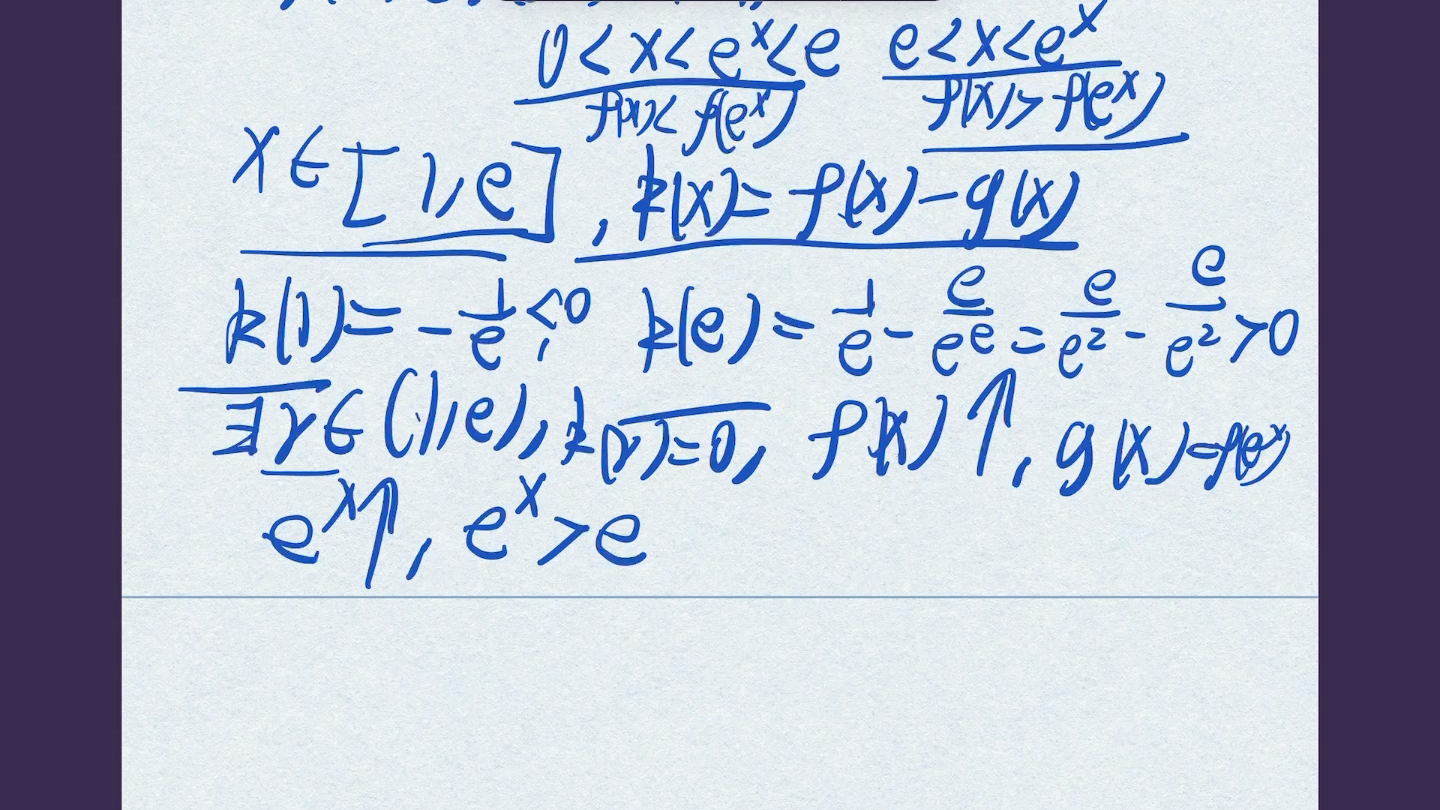 0 < x < e^x < e   e < x < e^x
f(x) < f(e^x)   f(x) > f(e^x)
x ∈ [1, e], k(x) = f(x) - g(x)
k(1) = -1/e < 0, k(e) = 1/e - e/e^e = e/e^2 - e/e^2 > 0
∃ r ∈ (1, e), k(r) = 0, f(x)↑, g(x) = f(e^x)
e^x↑, e^x > e